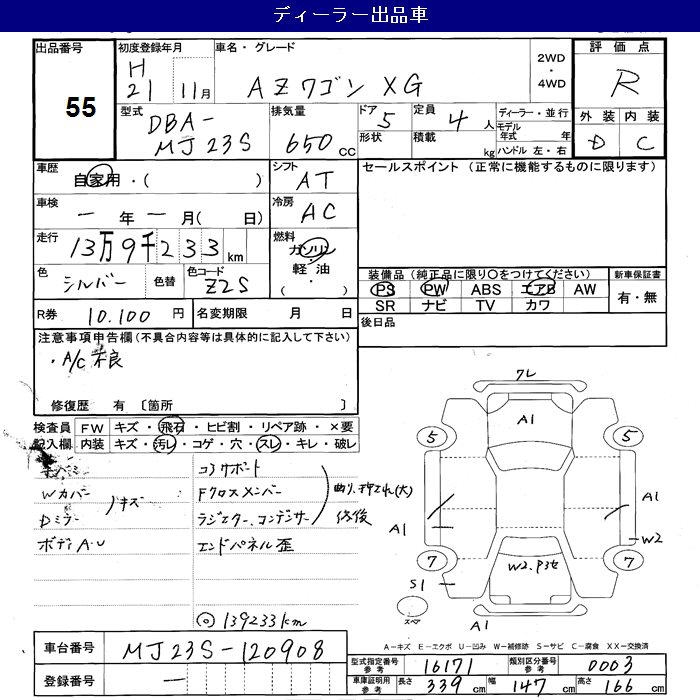 ディーラー出品車
出品番号 55
初度登録年月 H 21 11月
車名・グレード AZワゴン XG
2WD・4WD
評価点 R
外装 D 内装 C
型式 DBA- MJ23S
排気量 650 cc
ドア 5
形状
定員 4人
積載 kg
ディーラー・並行
モデル年式 年
ハンドル 左・右
車歴 自家用・( )
シフト AT
セールスポイント (正常に機能するものに限ります)
車検 一 年 一 月( 日)
冷房 AC
走行 13万9千233 km
燃料 ガソリン・軽油・( )
色 シルバー 色替 色コード Z2S
装備品(純正品に限り○をつけてください)
PS PW ABS エアB AW
SR ナビ TV カワ
新車保証書 有・無
R券 10.100 円
名変期限 月 日
後日品
注意事項申告欄(不具合内容等は具体的に記入して下さい)
・A/C 不良
修復歴 有 〔箇所 〕
検査員記入欄
FW キズ・飛石・ヒビ割・リペア跡・×要
内装 キズ・汚レ・コゲ・穴・スレ・キレ・破レ
Wカバー
Dミラー キズ
ボディA・U
コアサポート
Fクロスメンバー
ラジエター、コンデンサー
曲り、押され(大)
修復
エンドパネル歪
◎139233km
クレ
A1
5 5
A1 A1
W2
7 7
W2.P3セ
S1
スペア
A1
A-キズ E-エクボ U-凹み W-補修跡 S-サビ C-腐食 XX-交換済
車台番号 MJ23S-120908
登録番号 一
型式指定番号 参考 16171 類別区分番号 参考 0003
車庫証明用 参考 長さ 339 cm 幅 147 cm 高さ 166 cm